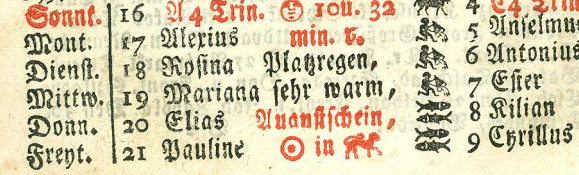 Sonnt. 16 A 4 Trin. 10 u. 32 4 E 4 Trin
Mont. 17 Alexius min. v. 5 Anselmu
Dienst. 18 Rosina Platzregen, 6 Antonius
Mittw. 19 Mariana sehr warm, 7 Ester
Donn. 20 Elias Auanstschein, 8 Kilian
Freyt. 21 Pauline ☉ in ♌ 9 Cyrillus